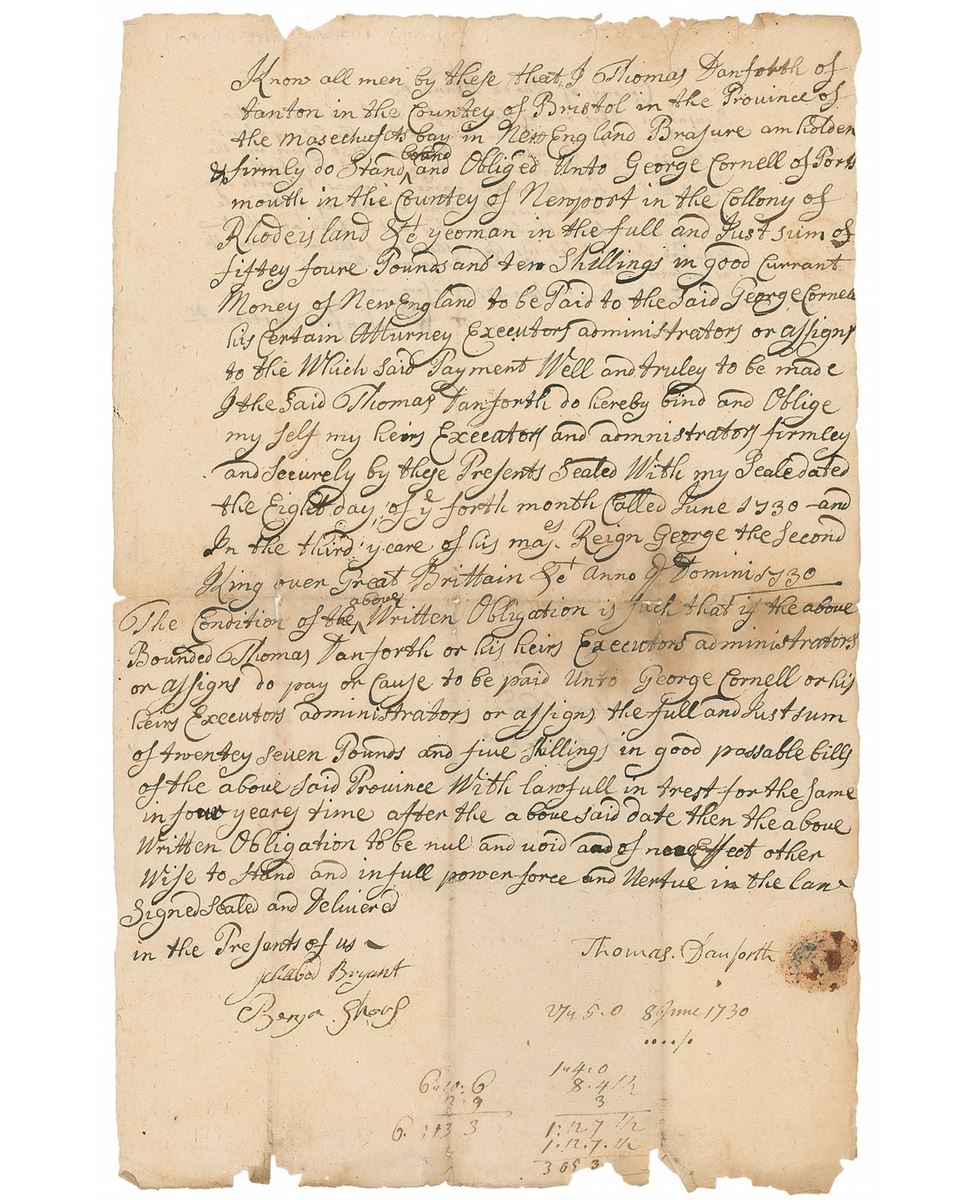 Know all men by these that I Thomas Danforth of
tanton in the Countey of Bristol in the Province of
the masechusets bay in New England Brasure am holden
& firmly do Stand bound and Obliged Unto George Cornell of Ports
mouth in the Countey of Newport in the Collony of
Rhodeisland &c yeoman in the full and Just sum of
fiftey foure Pounds and ten Shillings in good Currant
Money of New England to be Paid to the Said George Cornell
his Certain Atturney Executors administrators or assigns
to the Which said Payment Well and truley to be made
I the Said Thomas Danforth do hereby bind and Oblige
my self my heirs Executors and admnistrators firmley
and securely by these Presents Sealed With my Seale dated
the Eight day of ye forth month Called June 1730 - and
In the third yeare of his majes Reign George the Second
King over Great Brittain &c Anno Domini 1730
The Condition of the above Written Obligation is Such that if the above
Bounded Thomas Danforth or his heirs Executors administrators
or assigns do pay or Cause to be paid Unto George Cornell or his
heirs Executors administrators or assigns the full and Just sum
of twentey seven Pounds and five shillings in good passable bills
of the above said Province With lawfull in trest for the same
in four yeares time after the above said date then the above
Written Obligation to be nul and void and of none Effect other
Wise to Stand and in full power force and Vertue in the law
Signed Sealed and Delivered
in the Presents of us
Thomas. Danforth
Ichabod Bryant
Benja
27" 5. 0 8 June 1730
1" 4. 0
6" 10. 6 8. 4 1/2
2. 9 3
6. 13 3 1: 12. 7 1/2
1. 12. 7. 1/2
3 05 3